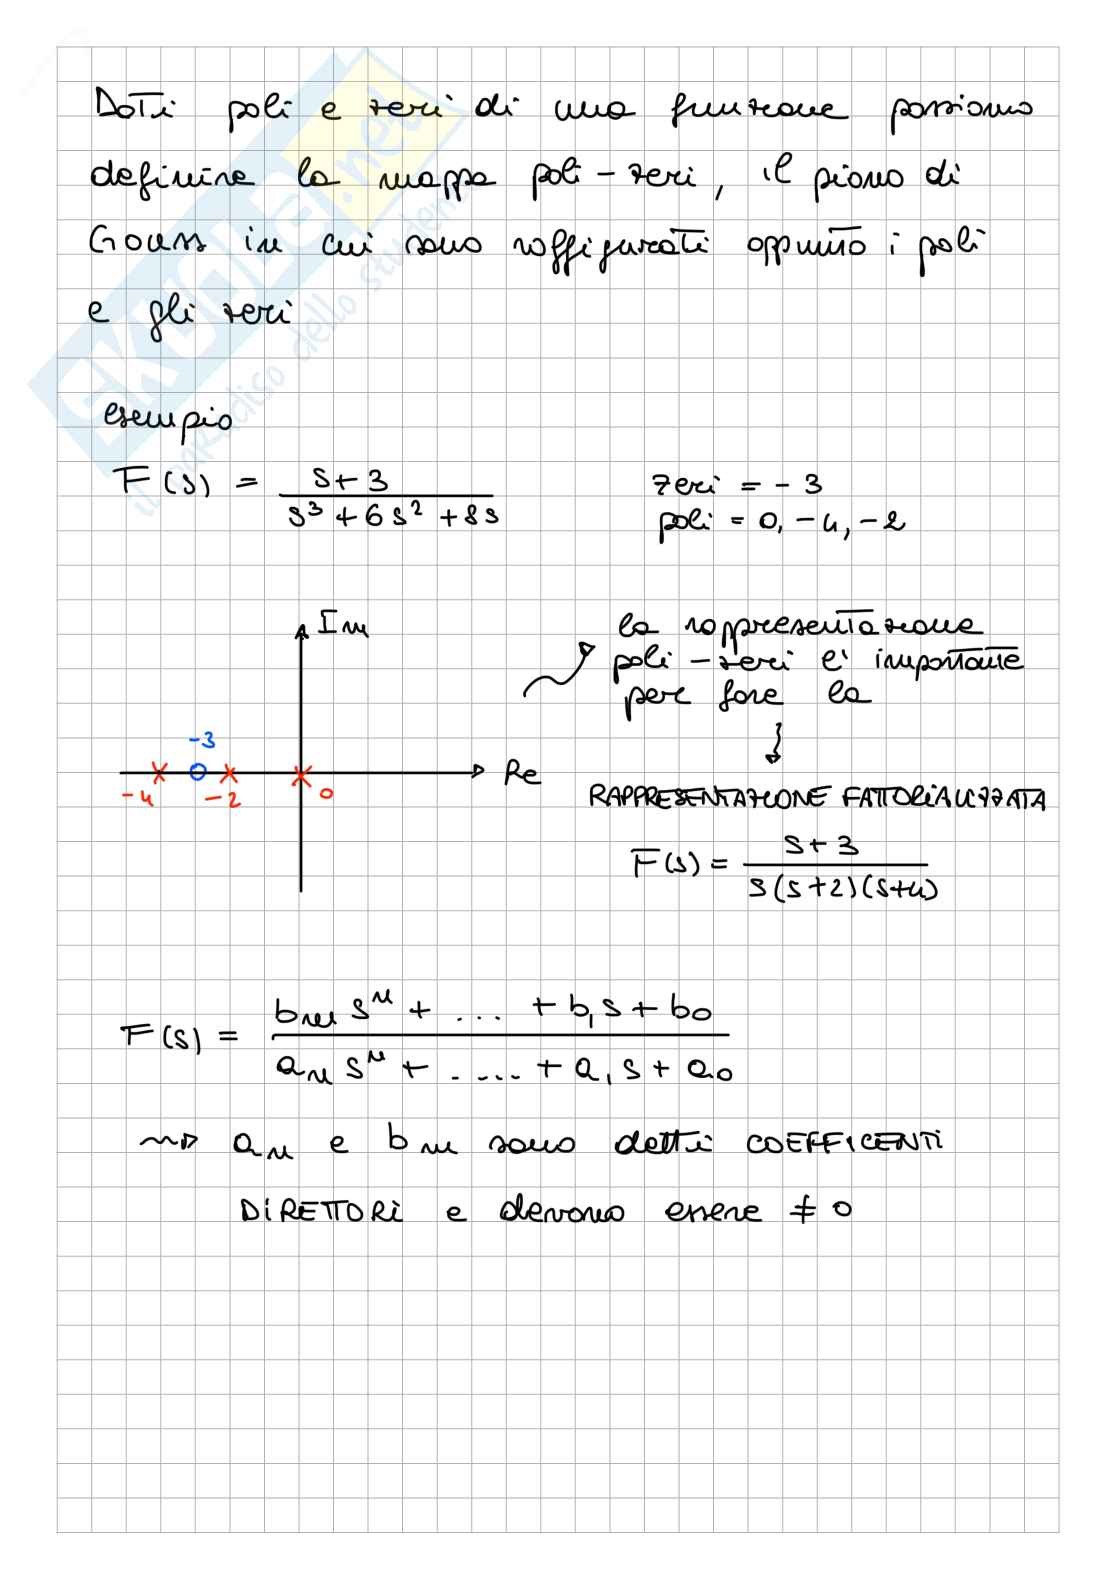 Dati poli e zeri di una funzione possiamo
definire la mappa poli-zeri, il piano di
Gauss in cui sono raffigurati appunto i poli
e gli zeri
esempio
F(s) = (s+3) / (s³ + 6s² + 8s)
zeri = -3
poli = 0, -4, -2
Im
la rappresentazione
poli-zeri e' importante
per fare la
-3
-4
-2
0
Re
RAPPRESENTAZIONE FATTORIALIZZATA
F(s) = (s+3) / (s(s+2)(s+4))
F(s) = (bₘ sᵐ + ... + b₁s + b₀) / (aₙ sⁿ + .... + a₁s + a₀)
aₙ e bₘ sono detti COEFFICENTI
DIRETTORI e devono essere ≠ 0
SKUOLA.net
il paradiso dello studente